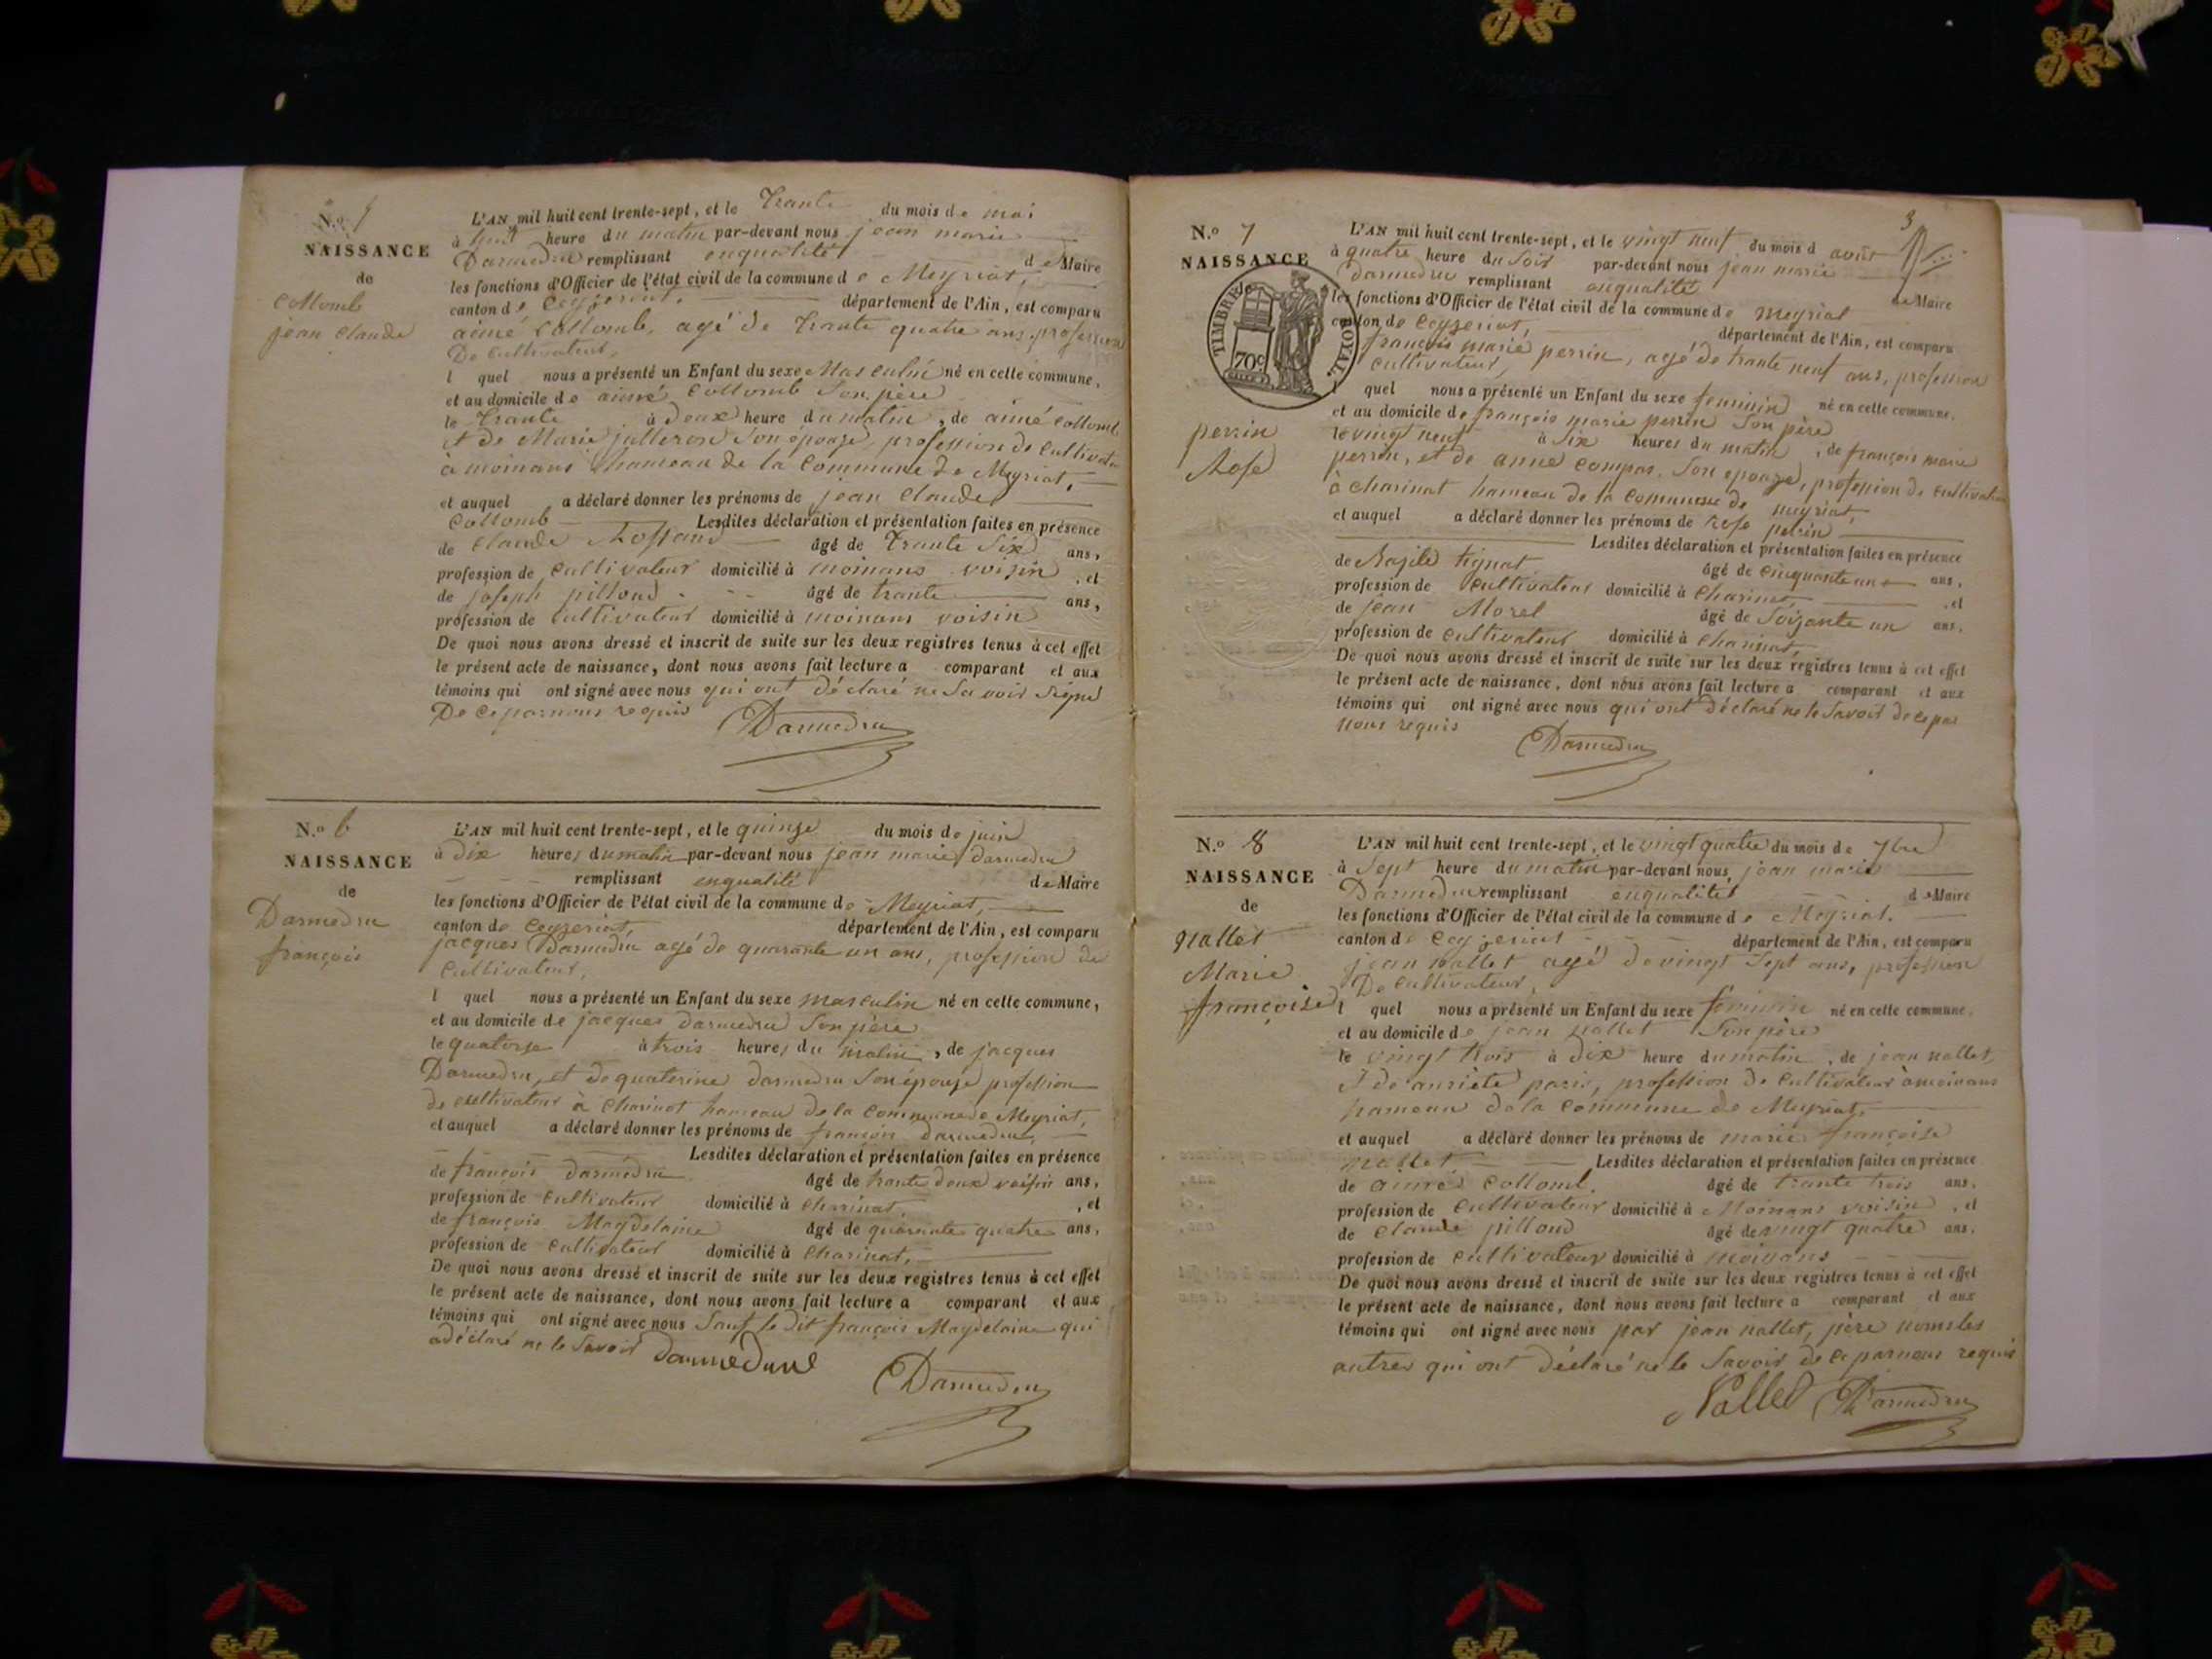 N.o 5
NAISSANCE
de
Collomb
jean Claude
L'AN mil huit cent trente-sept, et le Trante du mois de mai
à heure du matin par-devant nous jean marie
Darmedru remplissant enqualité de Maire
les fonctions d'Officier de l'état civil de la commune de Meyriat,
canton de Ceyzeriat, département de l'Ain, est comparu
aimé Collomb, agé de trante quatre ans, profession
De Cultivateur,
l quel nous a présenté un Enfant du sexe Masculin né en cette commune,
et au domicile de aimé Collomb Son père
le Trante à deux heure du matin, de aimé Collomb
et de Marie julleron Son épouze, profession de Cultivateur
à moinans hameau de la Commune de Meyriat,
et auquel a déclaré donner les prénoms de jean Claude
Collomb Lesdites déclaration et présentation faites en présence
de Claude Rossand âgé de Trante Six ans,
profession de Cultivateur domicilié à moinans voisin, et
de joseph pilloud âgé de trante ans,
profession de Cultivateur domicilié à moinans voisin
De quoi nous avons dressé et inscrit de suite sur les deux registres tenus à cet effet
le présent acte de naissance, dont nous avons fait lecture a comparant et aux
témoins qui ont signé avec nous qui ont déclaré ne Savoir Signé
De ce parnous requis Darmedru
N.o 6
NAISSANCE
de
Darmedru
françois
L'AN mil huit cent trente-sept, et le quinze du mois de juin
à Dix heures du matin par-devant nous jean marie darmedru
remplissant enqualité de Maire
les fonctions d'Officier de l'état civil de la commune de Meyriat,
canton de Ceyzeriat département de l'Ain, est comparu
jacques Darmedru agé de quarante un ans, profession de
Cultivateur,
l quel nous a présenté un Enfant du sexe masculin né en cette commune,
et au domicile de jacques darmedru Son père
le quatorze à trois heures du matin, de jacques
Darmedru, et de quaterine darmedru Son épouze profession
de Cultivateur à Charinat hameau de la Commune de Meyriat,
et auquel a déclaré donner les prénoms de françois darmedru,
Lesdites déclaration et présentation faites en présence
de françois darmedru âgé de trante deux voisin ans,
profession de Cultivateur domicilié à Charinat, et
de françois Magdelaine âgé de quarante quatre ans,
profession de Cultivateur domicilié à Charinat,
De quoi nous avons dressé et inscrit de suite sur les deux registres tenus à cet effet
le présent acte de naissance, dont nous avons fait lecture a comparant et aux
témoins qui ont signé avec nous Sauf le dit françois Magdelaine qui
a déclaré ne le Savoir Darmedru
Darmedru
3
N.o 7
NAISSANCE
TIMBRE ROYAL.
70c
perrin
Rose
L'AN mil huit cent trente-sept, et le vingt neuf du mois d août
à quatre heure du Soir par-devant nous jean marie
Darmedru remplissant enqualité de Maire
les fonctions d'Officier de l'état civil de la commune de meyriat
canton de Ceyzeriat, département de l'Ain, est comparu
françois marie perrin, agé de trante neuf ans, profession
Cultivateur,
l quel nous a présenté un Enfant du sexe feminin né en cette commune,
et au domicile de françois marie perrin Son père
le vingt neuf à Six heures du matin, de françois marie
perrin, et de anne compas, Son epouze, profession de Cultivateur
à Charinat hameau de la Commune de meyriat,
et auquel a déclaré donner les prénoms de rose perrin
Lesdites déclaration et présentation faites en présence
de Bazile tignat âgé de Cinquante un ans,
profession de Cultivateur domicilié à Charinat, et
de jean Morel âgé de Soizante un ans,
profession de Cultivateur domicilié à Charinat,
De quoi nous avons dressé et inscrit de suite sur les deux registres tenus à cet effet
le présent acte de naissance, dont nous avons fait lecture a comparant et aux
témoins qui ont signé avec nous qui ont déclaré ne le Savoir de ce par
nous requis Darmedru
N.o 8
NAISSANCE
de
nallet
Marie
françoise
L'AN mil huit cent trente-sept, et le vingt quatre du mois de 7bre
à Sept heure du matin par-devant nous, jean marie
Darmedru remplissant enqualité de Maire
les fonctions d'Officier de l'état civil de la commune de Meyriat.
canton de Ceyzeriat département de l'Ain, est comparu
jean nallet agé de vingt Sept ans, profession
De Cultivateur,
l quel nous a présenté un Enfant du sexe féminin né en cette commune,
et au domicile de jean nallet Son père
le vingt trois à Dix heure du matin, de jean nallet,
et de pariz, profession de Cultivateur à moinans
hameau de la Commune de Meyriat,
et auquel a déclaré donner les prénoms de marie françoise
nallet Lesdites déclaration et présentation faites en présence
de aimé Collomb. âgé de trante trois ans,
profession de Cultivateur domicilié à Moinans voisin, et
de Claude pilloud âgé de vingt quatre ans,
profession de Cultivateur domicilié à moinans
De quoi nous avons dressé et inscrit de suite sur les deux registres tenus à cet effet
le présent acte de naissance, dont nous avons fait lecture a comparant et aux
témoins qui ont signé avec nous par jean nallet, père nomsles
autres qui ont Déclaré ne le Savoir de ce parnous requis
Nallet Darmedru